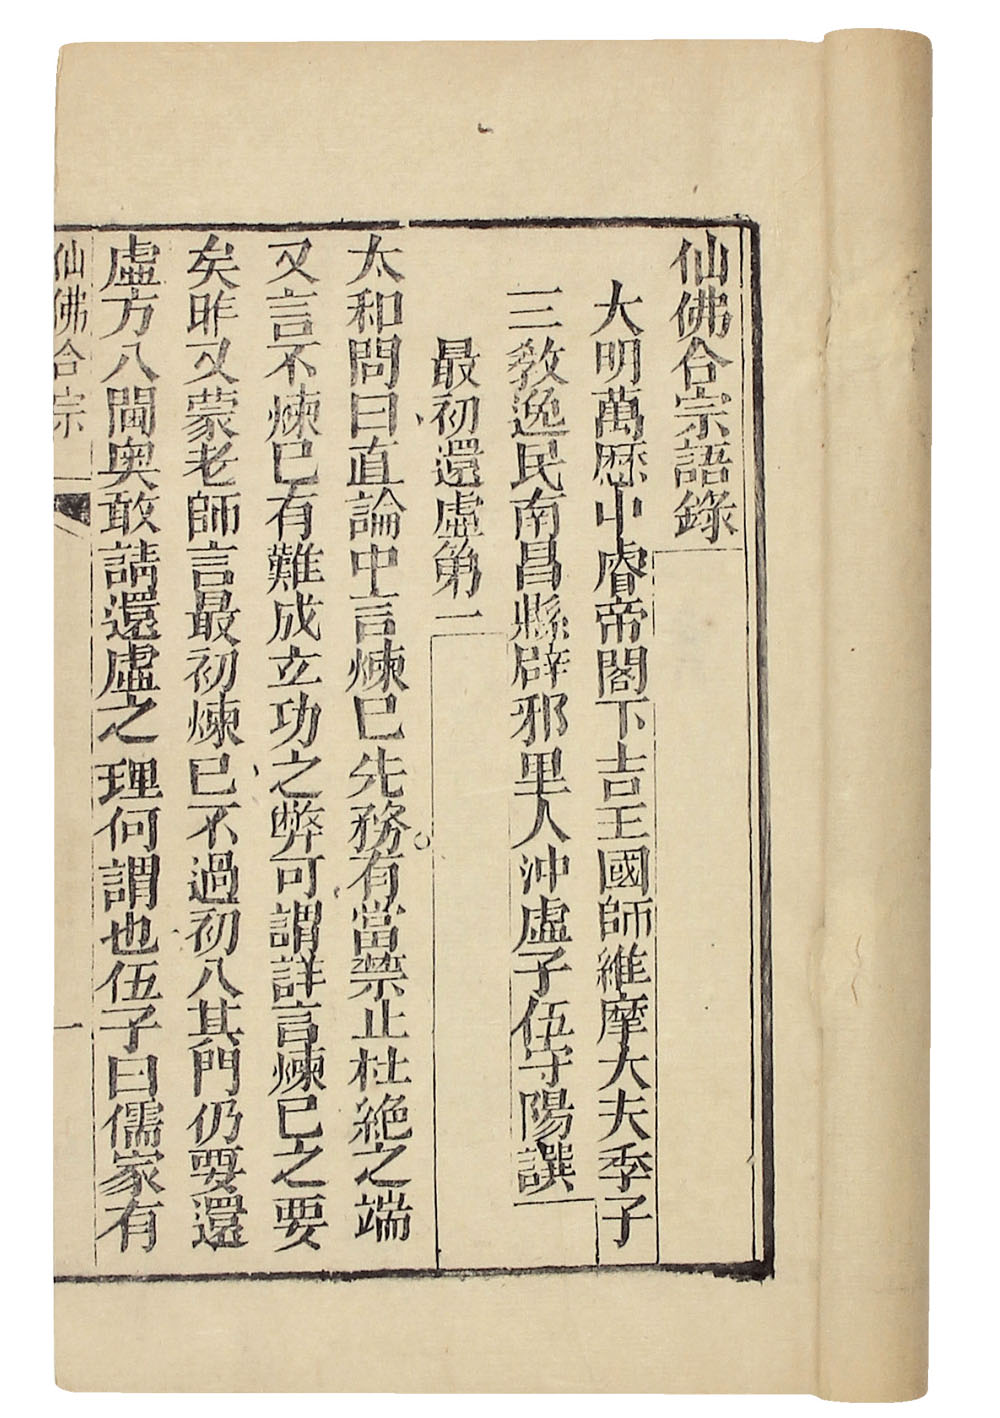 仙佛合宗語錄
大明萬歷中睿帝閣下吉王國師維摩大夫季子
三教逸民南昌縣辟邪里人沖虛子伍守陽譔
最初還虛第二
太和問曰直論中言煉巳先務有當禁止杜絶之端
又言不煉巳有難成立功之弊可謂詳言煉巳之要
矣昨又蒙老師言最初煉巳不過初八其門仍要還
虛方八閫奥敢請還虛之理何謂也伍子曰儒家有
仙佛合宗
一